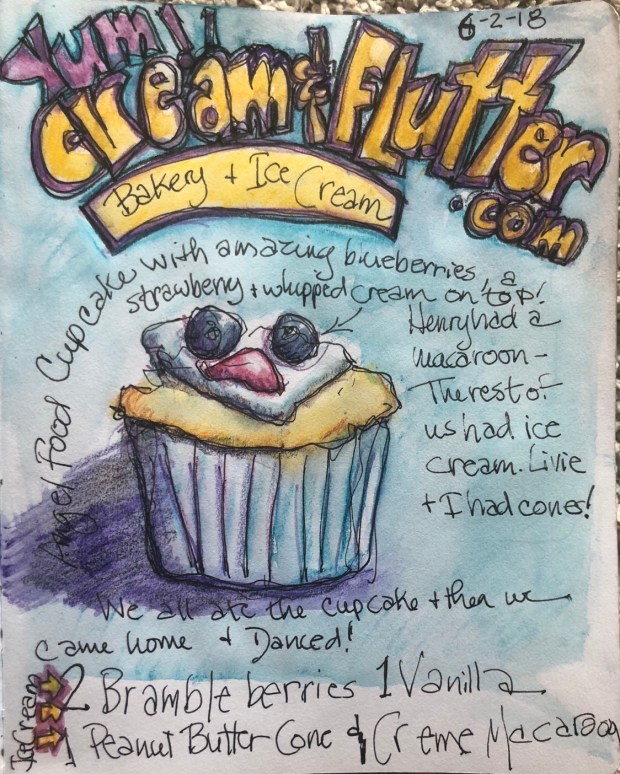 6-2-18
Yum!!
Cream & Flutter
.com
Bakery + Ice Cream
Angel Food Cupcake with amazing blueberries, a
strawberry + whupped cream on top!
Henry had a
macaroon -
The rest of
us had ice
cream. Livie
+ I had cones!
We all ate the cupcake + then we
came home + Danced!
Ice Cream
2 Bramble berries 1 Vanilla
1 Peanut Butter Cone & Creme Macaroon